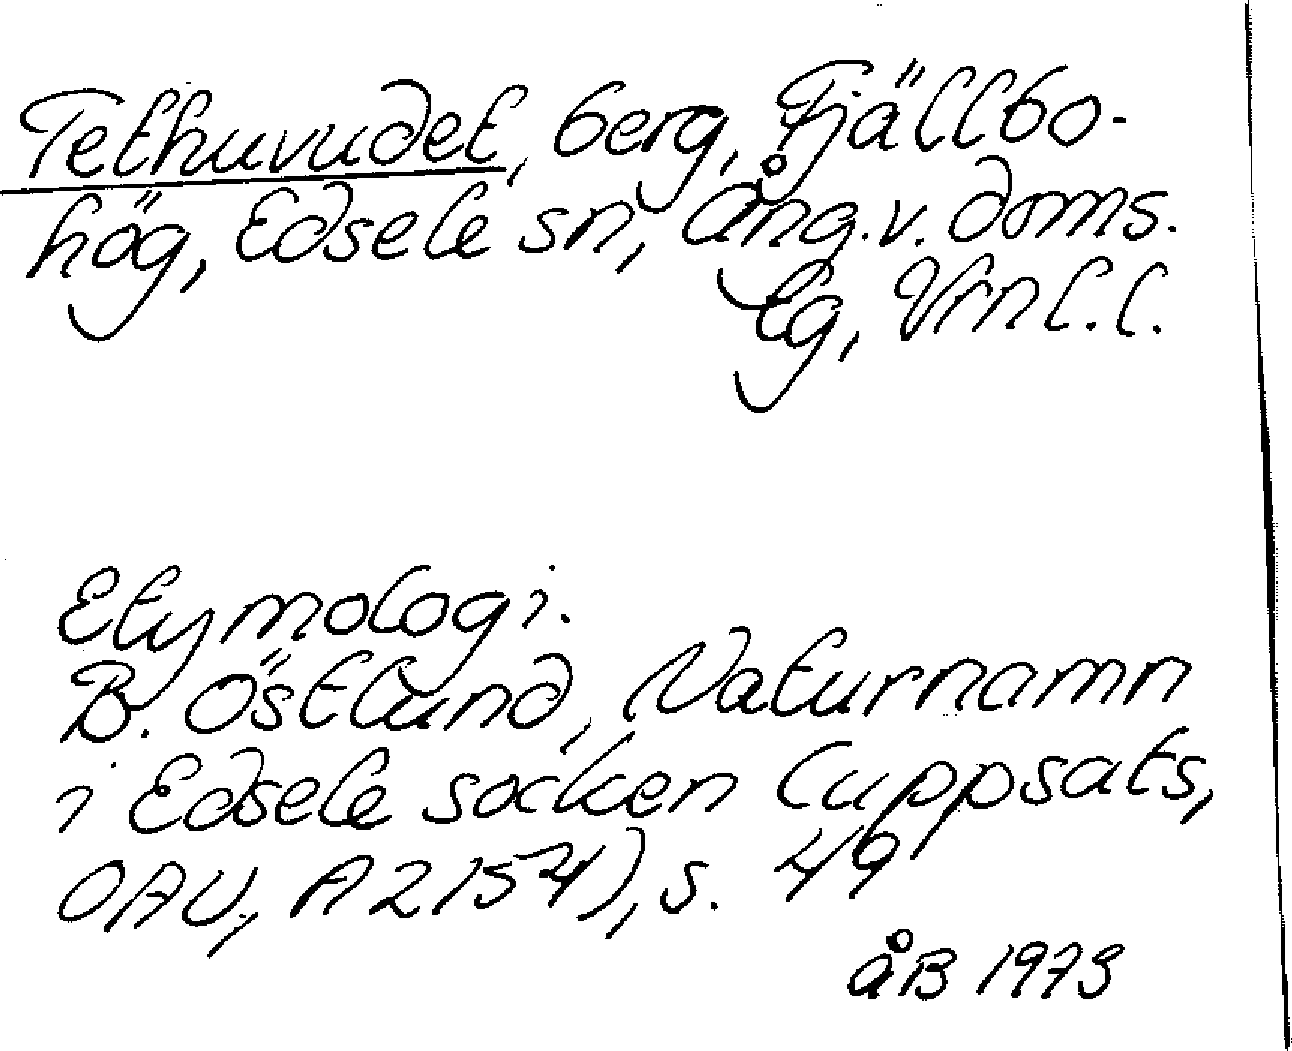 Tethuvudet, berg, Fjällbo-
hög, Edsele sn, Ång. v. doms.
lg, Vrnl. l.
Etymologi.
B. Östlund, Naturnamn
i Edsele socken (uppsats,
OAU, A 2154), s. 49
åB 1973